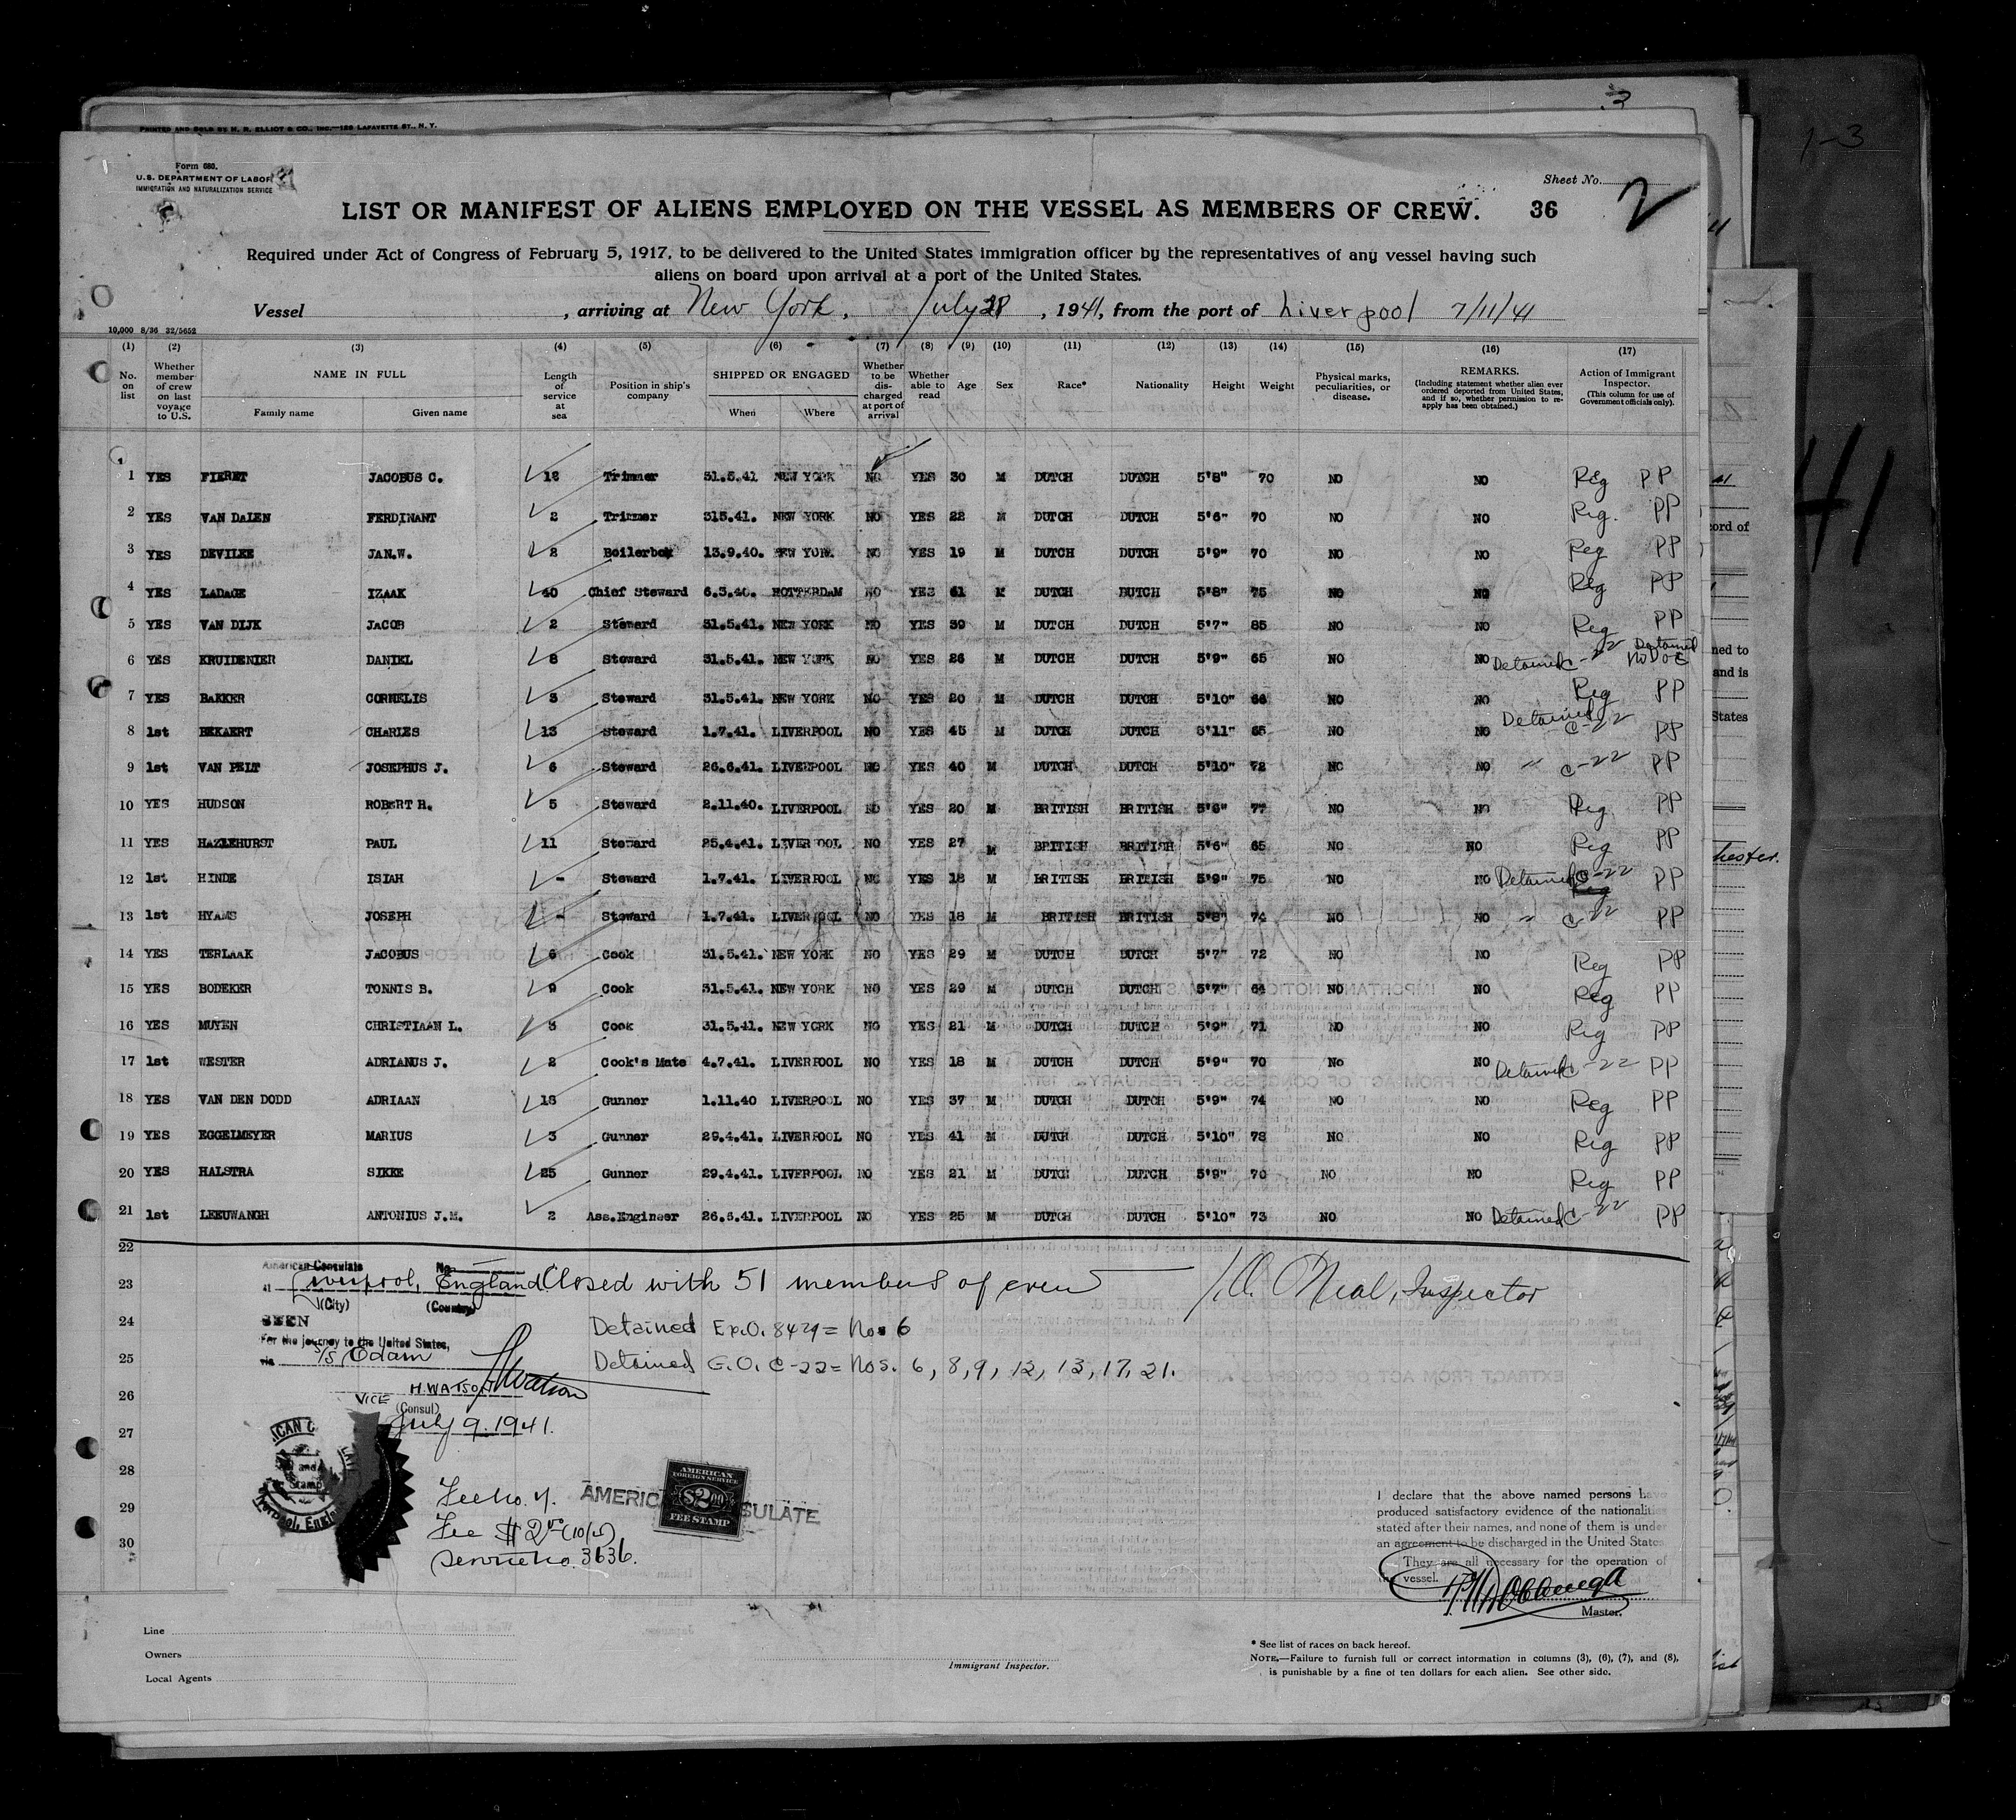 PRINTED AND SOLD BY H. R. ELLIOT & CO., INC.—129 LAFAYETTE ST., N. Y.
1-3
Form 680.
U.S. DEPARTMENT OF LABOR
IMMIGRATION AND NATURALIZATION SERVICE
Sheet No. 2
LIST OR MANIFEST OF ALIENS EMPLOYED ON THE VESSEL AS MEMBERS OF CREW. 36
Required under Act of Congress of February 5, 1917, to be delivered to the United States immigration officer by the representatives of any vessel having such
aliens on board upon arrival at a port of the United States.
Vessel , arriving at New York, July 28, 1941, from the port of Liverpool 7/11/41
10,000 8/36 32/5652
(1) (2) (3) (4) (5) (6) (7) (8) (9) (10) (11) (12) (13) (14) (15) (16) (17)
No. on list Whether member of crew on last voyage to U.S. NAME IN FULL Family name Given name Length of service at sea Position in ship's company SHIPPED OR ENGAGED When Where Whether to be discharged at port of arrival Whether able to read Age Sex Race* Nationality Height Weight Physical marks, peculiarities, or disease. REMARKS. (Including statement whether alien ever ordered deported from United States, and if so, whether permission to reapply has been obtained.) Action of Immigrant Inspector. (This column for use of Government officials only).
1 YES FIERET JACOBUS C. 12 Trimmer 31.5.41 NEW YORK NO YES 30 M DUTCH DUTCH 5'8" 70 NO NO Reg PP
2 YES VAN DALEN FERDINANT 2 Trimmer 315.41. NEW YORK NO YES 22 M DUTCH DUTCH 5'6" 70 NO NO Reg. PP
3 YES DEVILEE JAN.W. 2 Boilerbok 13.9.40. NEW YORK NO YES 19 M DUTCH DUTCH 5'9" 70 NO NO Reg PP
4 YES LADAGE IZAAK 40 Chief Steward 6.3.40. ROTTERDAM NO YES 61 M DUTCH DUTCH 5'8" 75 NO NO Reg PP
5 YES VAN DIJK JACOB 2 Steward 31.5.41. NEW YORK NO YES 39 M DUTCH DUTCH 5'7" 85 NO NO Reg PP
6 YES KRUIDENIER DANIEL 8 Steward 31.5.41. NEW YORK NO YES 26 M DUTCH DUTCH 5'9" 65 NO NO Detained C-22 Detained
7 YES BAKKER CORNELIS 3 Steward 31.5.41. NEW YORK NO YES 20 M DUTCH DUTCH 5'10" 66 NO NO Reg PP
8 1st BEKAERT CHARLES 13 Steward 1.7.41. LIVERPOOL NO YES 45 M DUTCH DUTCH 5'11" 65 NO NO Detained C-22 PP
9 1st VAN PELT JOSEPHUS J. 6 Steward 26.6.41. LIVERPOOL NO YES 40 M DUTCH DUTCH 5'10" 72 NO NO " C-22 PP
10 YES HUDSON ROBERT H. 5 Steward 2.11.40. LIVERPOOL NO YES 20 M BRITISH BRITISH 5'6" 77 NO NO Reg. PP
11 YES HAZLEHURST PAUL 11 Steward 25.4.41. LIVERPOOL NO YES 27 M BRITISH BRITISH 5'6" 65 NO NO Reg PP
12 1st HINDE ISIAH - Steward 1.7.41. LIVERPOOL NO YES 18 M BRITISH BRITISH 5'9" 75 NO NO Detained C-22 Reg PP
13 1st HYAMS JOSEPH - Steward 1.7.41. LIVERPOOL NO YES 18 M BRITISH BRITISH 5'8" 74 NO NO " C-22 PP
14 YES TERLAAK JACOBUS 6 Cook 31.5.41. NEW YORK NO YES 29 M DUTCH DUTCH 5'7" 72 NO NO Reg PP
15 YES BODEKER TONNIS B. 9 Cook 31.5.41. NEW YORK NO YES 29 M DUTCH DUTCH 5'7" 64 NO NO Reg PP
16 YES MUYEN CHRISTIAAN L. 5 Cook 31.5.41. NEW YORK NO YES 21 M DUTCH DUTCH 5'9" 71 NO NO Reg PP
17 1st WESTER ADRIANUS J. 2 Cook's Mate 4.7.41. LIVERPOOL NO YES 18 M DUTCH DUTCH 5'9" 70 No NO Detained C-22 PP
18 YES VAN DEN DODD ADRIAAN 18 Gunner 1.11.40 LIVERPOOL NO YES 37 M DUTCH DUTCH 5'9" 74 NO NO Reg PP
19 YES EGGELMEYER MARIUS 3 Gunner 29.4.41. LIVERPOOL NO YES 41 M DUTCH DUTCH 5'10" 78 NO NO Reg PP
20 YES HALSTRA SIKKE 25 Gunner 29.4.41. LIVERPOOL NO YES 21 M DUTCH DUTCH 5'9" 70 NO NO Reg PP
21 1st LEEUWANGH ANTONIUS J.M. 2 Ass.Engineer 26.6.41. LIVERPOOL NO YES 25 M DUTCH DUTCH 5'10" 73 NO NO Detained C-22 PP
22
American Consulate No.
23 at Liverpool, England Closed with 51 members of crew O'Neal, Inspector
(City) (Country)
24 SEEN Detained Ex.O. 8429 = Nos 6
For the journey to the United States,
25 via S/S Edam Detained G.O. C-22 = Nos. 6, 8, 9, 12, 13, 17, 21.
26 H. WATSON
VICE (Consul)
27 July 9. 1941.
28
29 AMERICAN CONSULATE
30
AMERICAN FOREIGN SERVICE
$2.00
FEE STAMP
Liverpool, England
Fee No. 4.
Fee $2.50 (10/5)
Service No. 3636.
I declare that the above named persons have
produced satisfactory evidence of the nationalities
stated after their names, and none of them is under
an agreement to be discharged in the United States
They are all necessary for the operation of
the vessel.
Master.
Line
Owners
Local Agents
Immigrant Inspector.
* See list of races on back hereof.
NOTE.—Failure to furnish full or correct information in columns (3), (6), (7), and (8),
is punishable by a fine of ten dollars for each alien. See other side.
41
cord of
ned to
and is
States
hester.